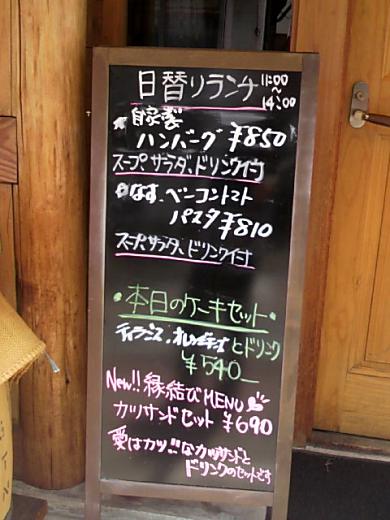 日替りランチ 11:00〜14:00
自家製
ハンバーグ ¥850
スープ、サラダ、ドリンク付
なす、ベーコントマト
パスタ ¥810
スープ、サラダ、ドリンク付
本日のケーキセット
ティラミス、オレンジチーズとドリンク
¥540_
New!! 縁結びMENU
カツサンドセット ¥690
愛はカツ!!なカツサンドと
ドリンクのセットです